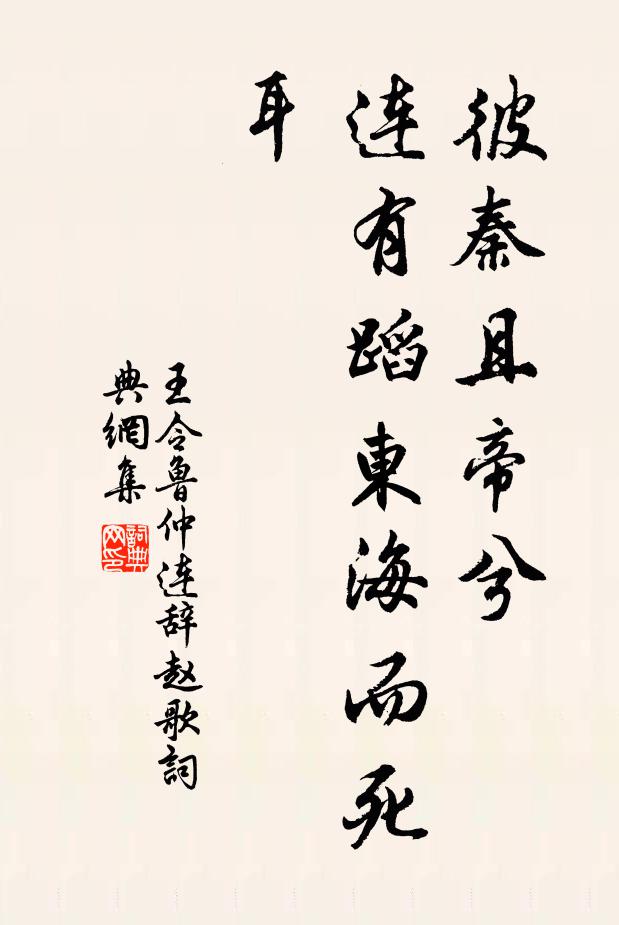 彼秦且帝兮
連有蹈東海而死
耳
王令魯仲連辞赵歌詞
典網集
詞典
网印